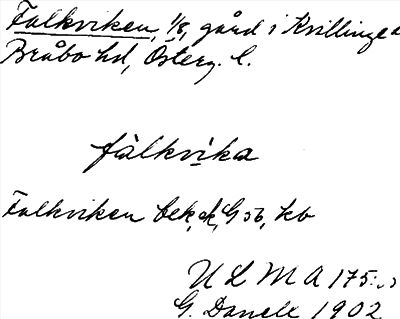 Falkviken, 1/8, gård i Kvillinge
Bråbo hd, Österg. l.
fàlkvika
Falkviken bek, ek, G 56, kb
U L M A 175:
G. Danell 1902